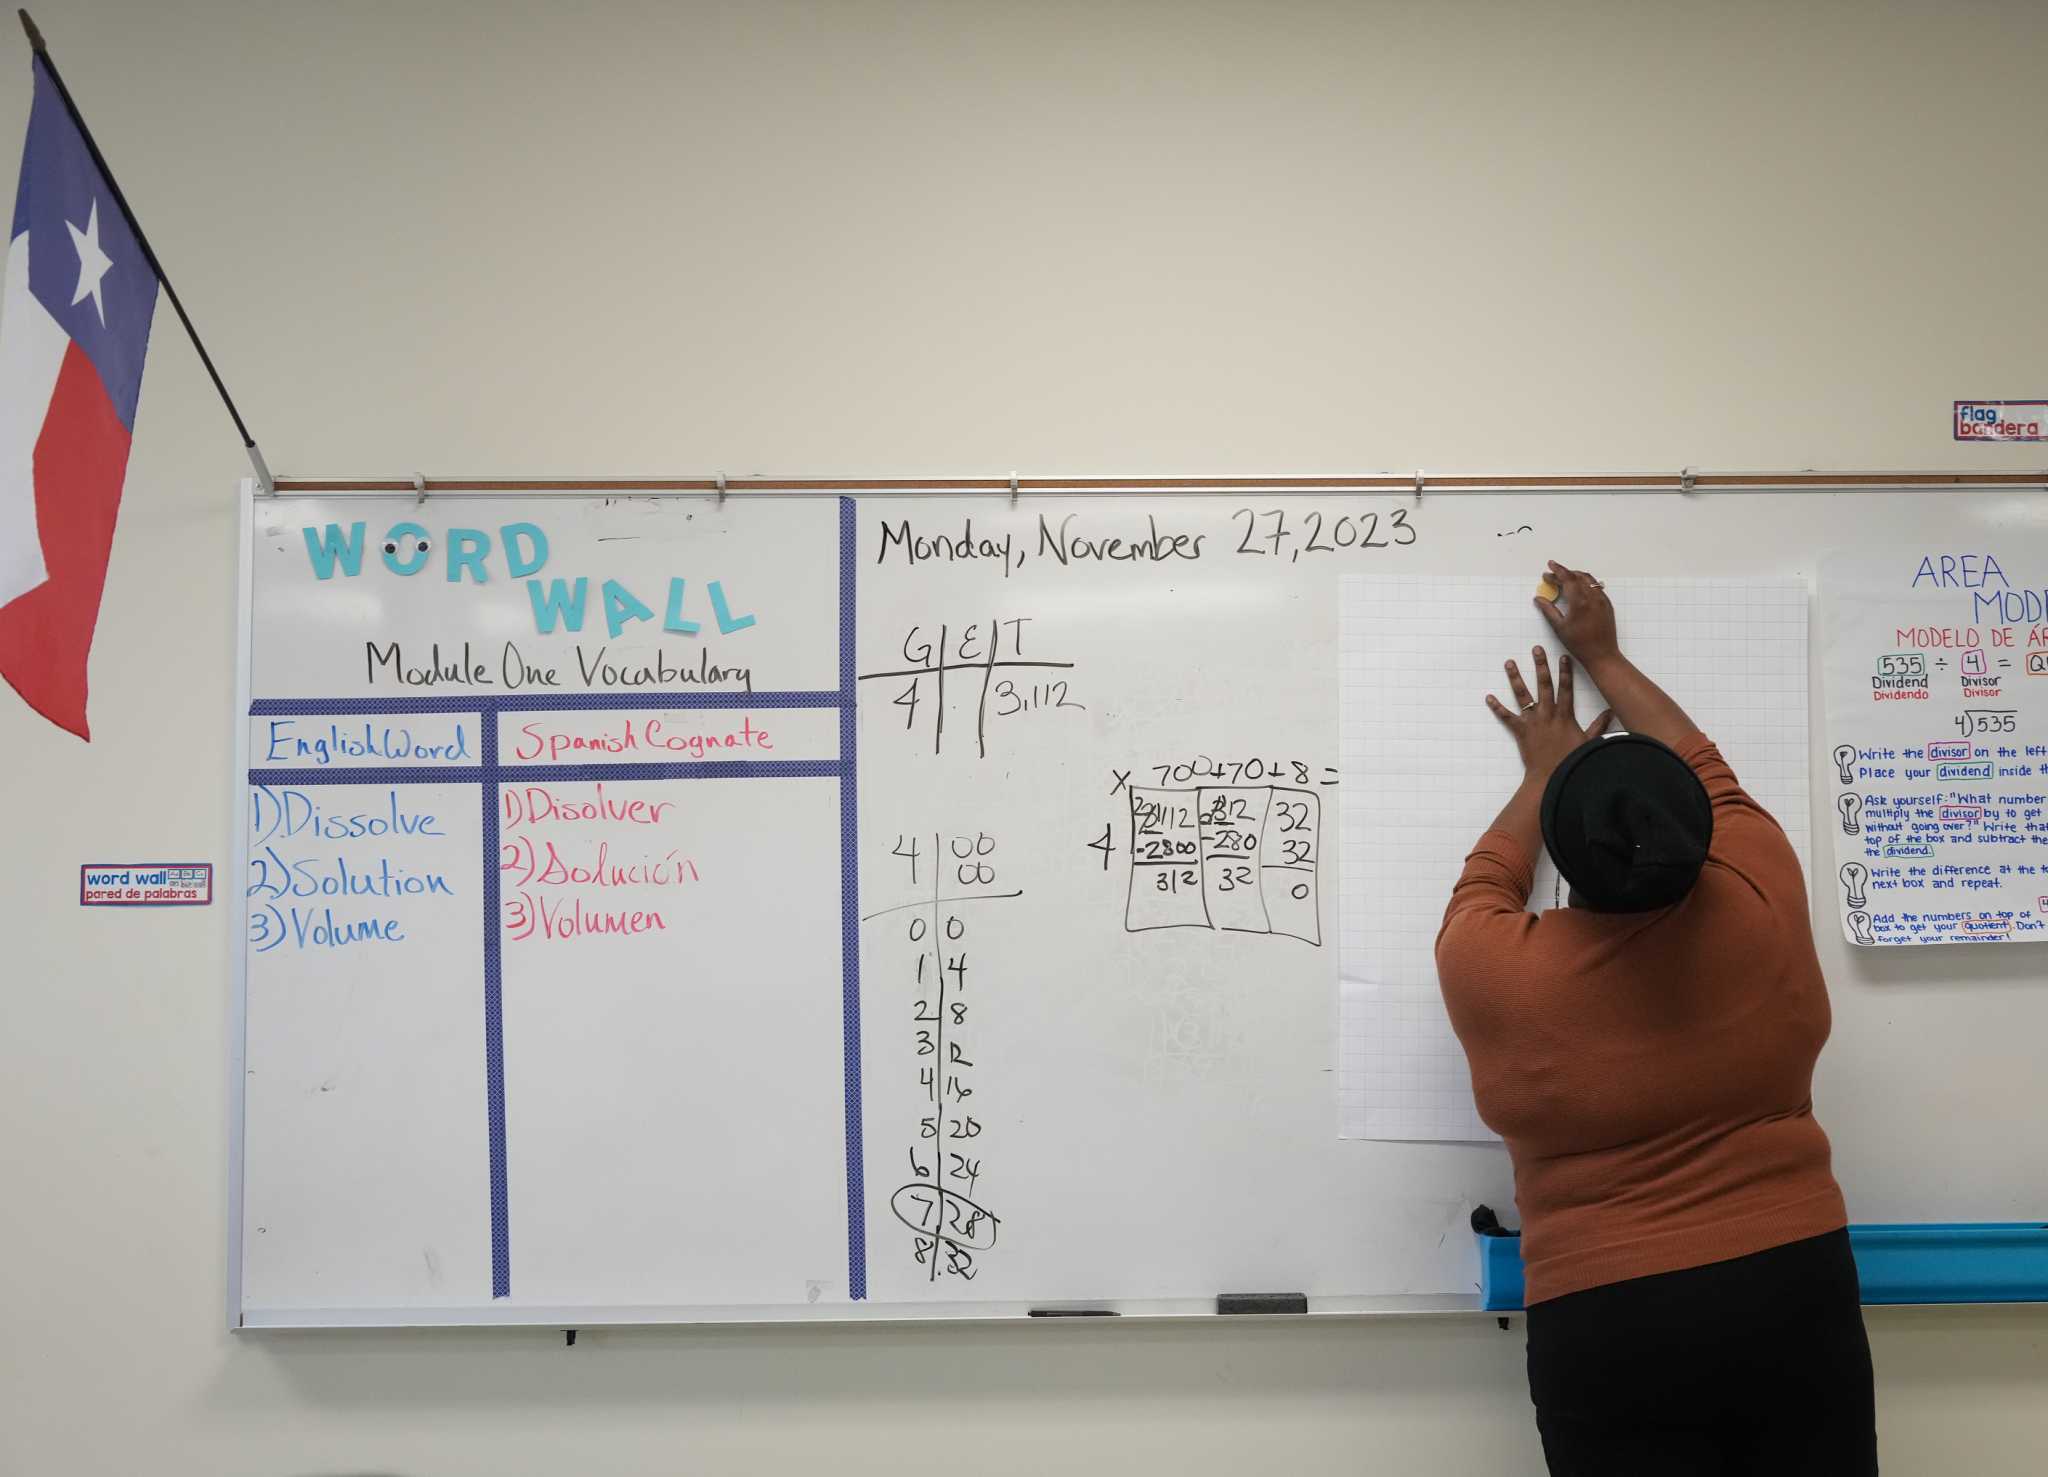 flag
bandera
WORD
WALL
Module One Vocabulary
English Word
Spanish Cognate
1) Dissolve
1) Disolver
2) Solution
2) Solución
3) Volume
3) Volumen
word wall
pared de palabras
Monday, November 27, 2023
G E T
4 3,112
4 00
00
0 0
1 4
2 8
3 12
4 16
5 20
6 24
7 28
8 32
x 700+70+8=
4
-2800
312
312
-280
32
32
32
0
AREA
MODELO DE
535 ÷ 4 =
Dividend Divisor
Dividendo Divisor
4)535
Write the divisor on the left
Place your dividend inside
Ask yourself: "What number
multiply the divisor by to get
without going over?" Write
top of the box and subtract
the dividend.
Write the difference at the
next box and repeat.
Add the numbers on top of
box to get your quotient. Don't
forget your remainder!